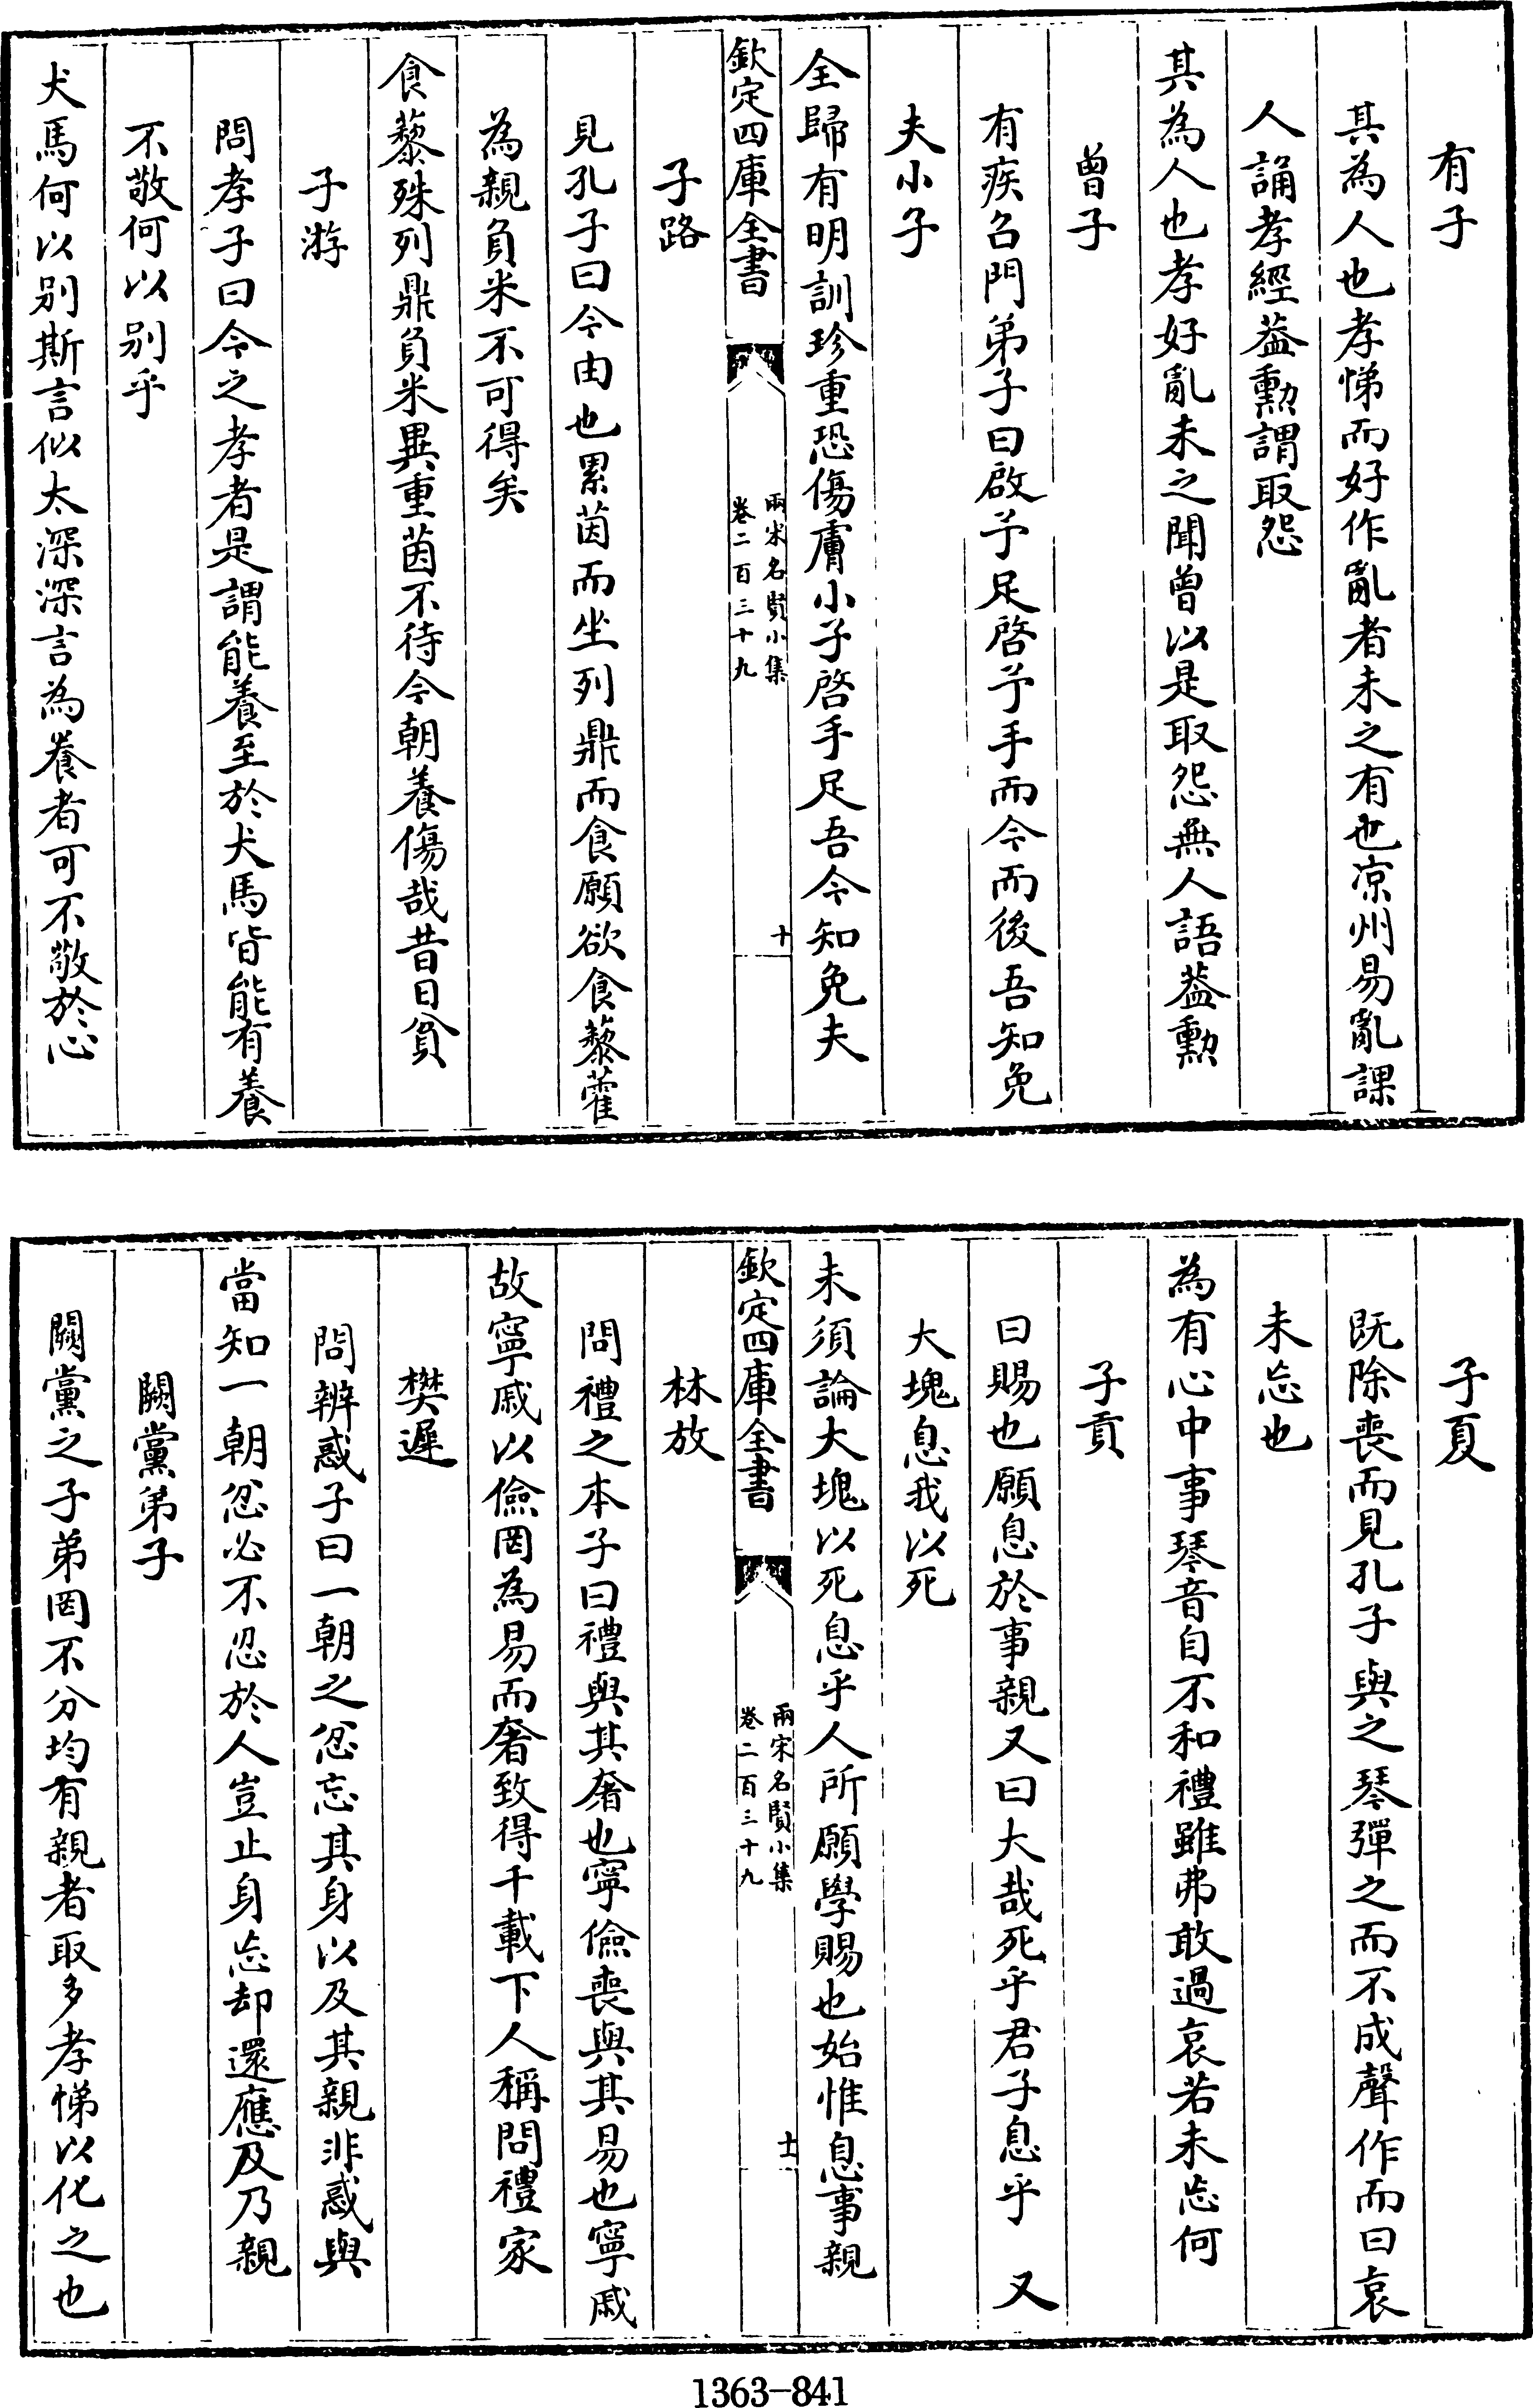 有子
其為人也孝悌而好作亂者未之有也凉州易亂課
人誦孝經葢勲謂取怨
其為人也孝好亂未之聞曾以是取怨無人語葢勲
曾子
有疾召門弟子曰啟予足啓予手而今而後吾知免
夫小子
全歸有明訓珍重恐傷膚小子啓手足吾今知免夫
欽定四庫全書
兩宋名賢小集
卷二百三十九
十
子路
見孔子曰今由也累茵而坐列鼎而食願欲食藜藿
為親負米不可得矣
食藜殊列鼎負米異重茵不待今朝養傷哉昔日貧
子游
問孝子曰今之孝者是謂能養至於犬馬皆能有養
不敬何以别乎
犬馬何以别斯言似太深深言為養者可不敬於心
子夏
既除喪而見孔子與之琴彈之而不成聲作而曰哀
未忘也
為有心中事琴音自不和禮雖弗敢過哀若未忘何
子貢
曰賜也願息於事親又曰大哉死乎君子息乎 又
大塊息我以死
未須論大塊以死息乎人所願學賜也始惟息事親
欽定四庫全書
兩宋名賢小集
卷二百三十九
十一
林放
問禮之本子曰禮與其奢也寧儉喪與其易也寧戚
故寧戚以儉罔為易而奢致得千載下人稱問禮家
樊遲
問辨惑子曰一朝之忿忘其身以及其親非惑與
當知一朝忿必不忍於人豈止身忘却還應及乃親
闕黨弟子
闕黨之子弟罔不分均有親者取多孝悌以化之也
1363-841